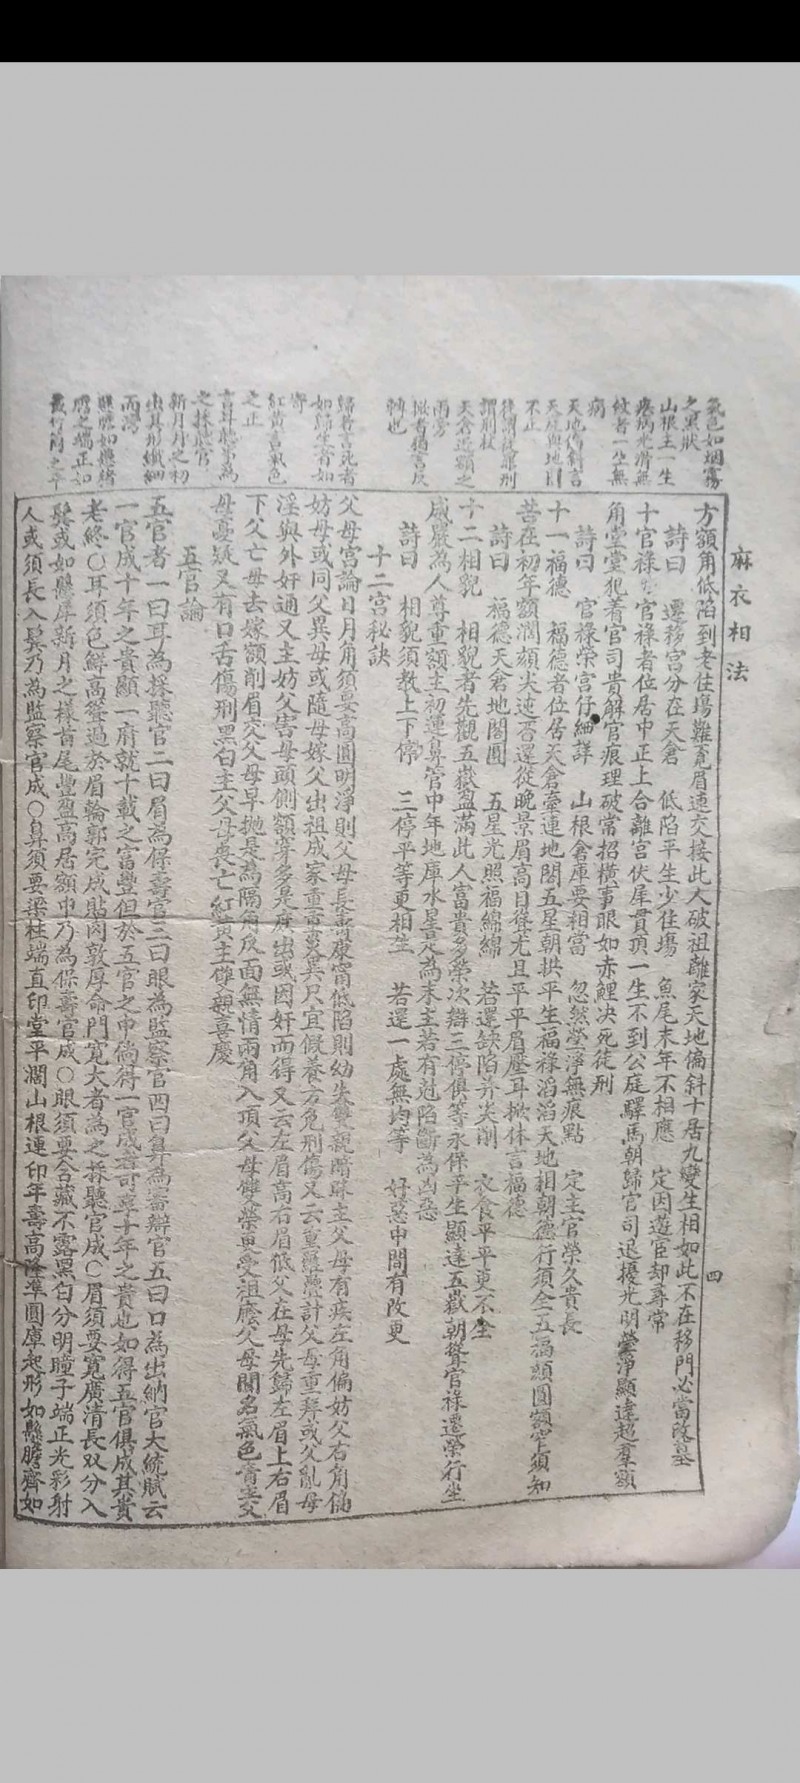 麻衣相法
四
氣色如烟霧
之黑狀
山根主一生
疾病光滑無
紋者一生無
病
天地偏斜言
天庭與地閣
不止
徒謂徒罪刑
謂刑杖
天倉近額之
兩旁
掀者猶言反
轉也
歸者言死者
如歸生者如
寄
紅黃言氣色
之正
言耳聽事為
之採聽官
新月月之初
出其形纖細
而灣
膽之端正如
方額角低陷到老住塲難覓眉連交接此人破祖離家天地偏斜十居九變生相如此不在移門必當改墓
詩曰 遷移宮分在天倉 低陷平生少住塲 魚尾末年不相應 定因遊宦却尋常
十官祿 官祿者位居中正上合離宮伏犀貫頂一生不到公庭驛馬朝歸官司退擾光明瑩淨顯達超羣額
角堂堂犯着官司貴解官痕理破常招橫事眼如赤鯉決死徒刑
詩曰 官祿榮宮仔細詳 山根倉庫要相當 忽然瑩淨無痕點 定主官榮久貴長
十一福德 福德者位居天倉牽連地閣五星朝拱平生福祿滔滔天地相朝德行須全五福頦圓額窄須知
苦在初年額濶頦尖迍否還從晚景眉高目聳尤且平平眉壓耳掀休言福德
詩曰 福德天倉地閣圓 五星光照福綿綿 若還缺陷并尖削 衣食平平更不全
十二相貌 相貌者先觀五嶽盈滿此人富貴多榮次辯三停俱等永保平生顯達五嶽朝聳官祿遷榮行坐
威嚴為人尊重額主初運鼻管中年地庫水星是為末主若有尅陷斷為凶惡
詩曰 相貌須教上下停 三停平等更相生 若還一處無均等 好惡中間有改更
十二宮秘訣
父母宮論日月角須要高圓明淨則父母長壽康甯低陷則幼失雙親暗昧主父母有疾左角偏妨父右角偏
妨母或同父異母或隨母嫁父出祖成家重重災異只宜假養方免刑傷又云重羅疊計父母重拜或父亂母
淫與外奸通又主妨父害母頭側額窄多是庶出或因奸而得又云左眉高右眉低父在母先歸左眉上右眉
下父亡母去嫁額削眉交父母早拋是為隔角反面無情兩角入頂父母雙榮更受祖廕父母聞名氣色青主父
母憂疑又有口舌傷刑黑白主父母喪亡紅黃主雙親喜慶
五官論
五官者一曰耳為採聽官二曰眉為保壽官三曰眼為監察官四曰鼻為審辯官五曰口為出納官大統賦云
一官成十年之貴顯一府就十載之富豐但於五官之中倘得一官成者可享十年之貴也如得五官俱成其貴
老終○耳須色鮮高聳過於眉輪郭完成貼肉敦厚命門寬大者為之採聽官成○眉須要寬廣清長双分入
鬢或如懸犀新月之樣首尾豐盈高居額中乃為保壽官成○眼須要含藏不露黑白分明瞳子端正光彩射
人或須長入鬢乃為監察官成○鼻須要梁柱端直印堂平濶山根連印年壽高隆準圓庫起形如懸膽齊如